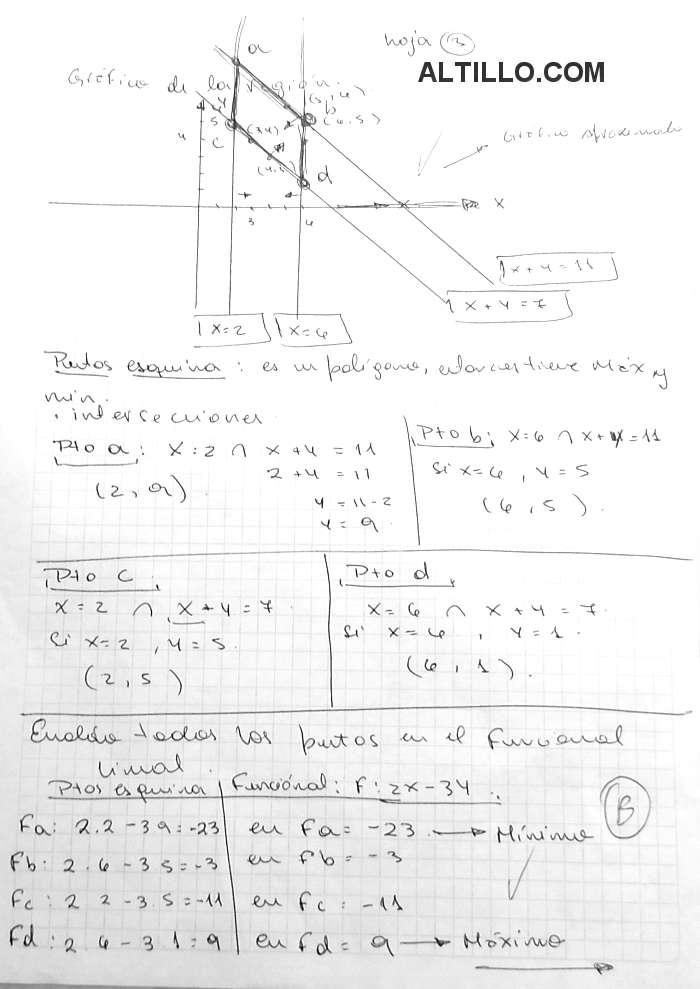 hoja 3
ALTILLO.COM
a
Gráfica de la región.
y
(5,4)
b
(6,5)
5
c
4
(4,3)
d
Gráfico aproximado
3
6
x
x + y = 11
x + y = 7
x = 2
x = 6
Puntos esquina: es un polígono, entonces tiene Máx y
mín.
intersecciones
Pto a: x = 2 ∩ x + y = 11
2 + y = 11
(2, 9)
y = 11 - 2
y = 9
Pto b: x = 6 ∩ x + y = 11
Si x = 6, y = 5
(6, 5).
Pto c
x = 2 ∩ x + y = 7
Si x = 2, y = 5.
(2, 5)
Pto d
x = 6 ∩ x + y = 7.
Si x = 6, y = 1.
(6, 1).
Evalúo todos los puntos en el funcional
lineal.
Ptos esquina Funcional: F: 2x - 3y
B
Fa: 2.2 - 3 9 = -23 en Fa = -23 → Mínimo
Fb: 2.6 - 3 5 = -3 en Fb = -3
Fc: 2 2 - 3.5 = -11 en Fc = -11
Fd: 2 6 - 3 1 = 9 en Fd = 9 → Máximo